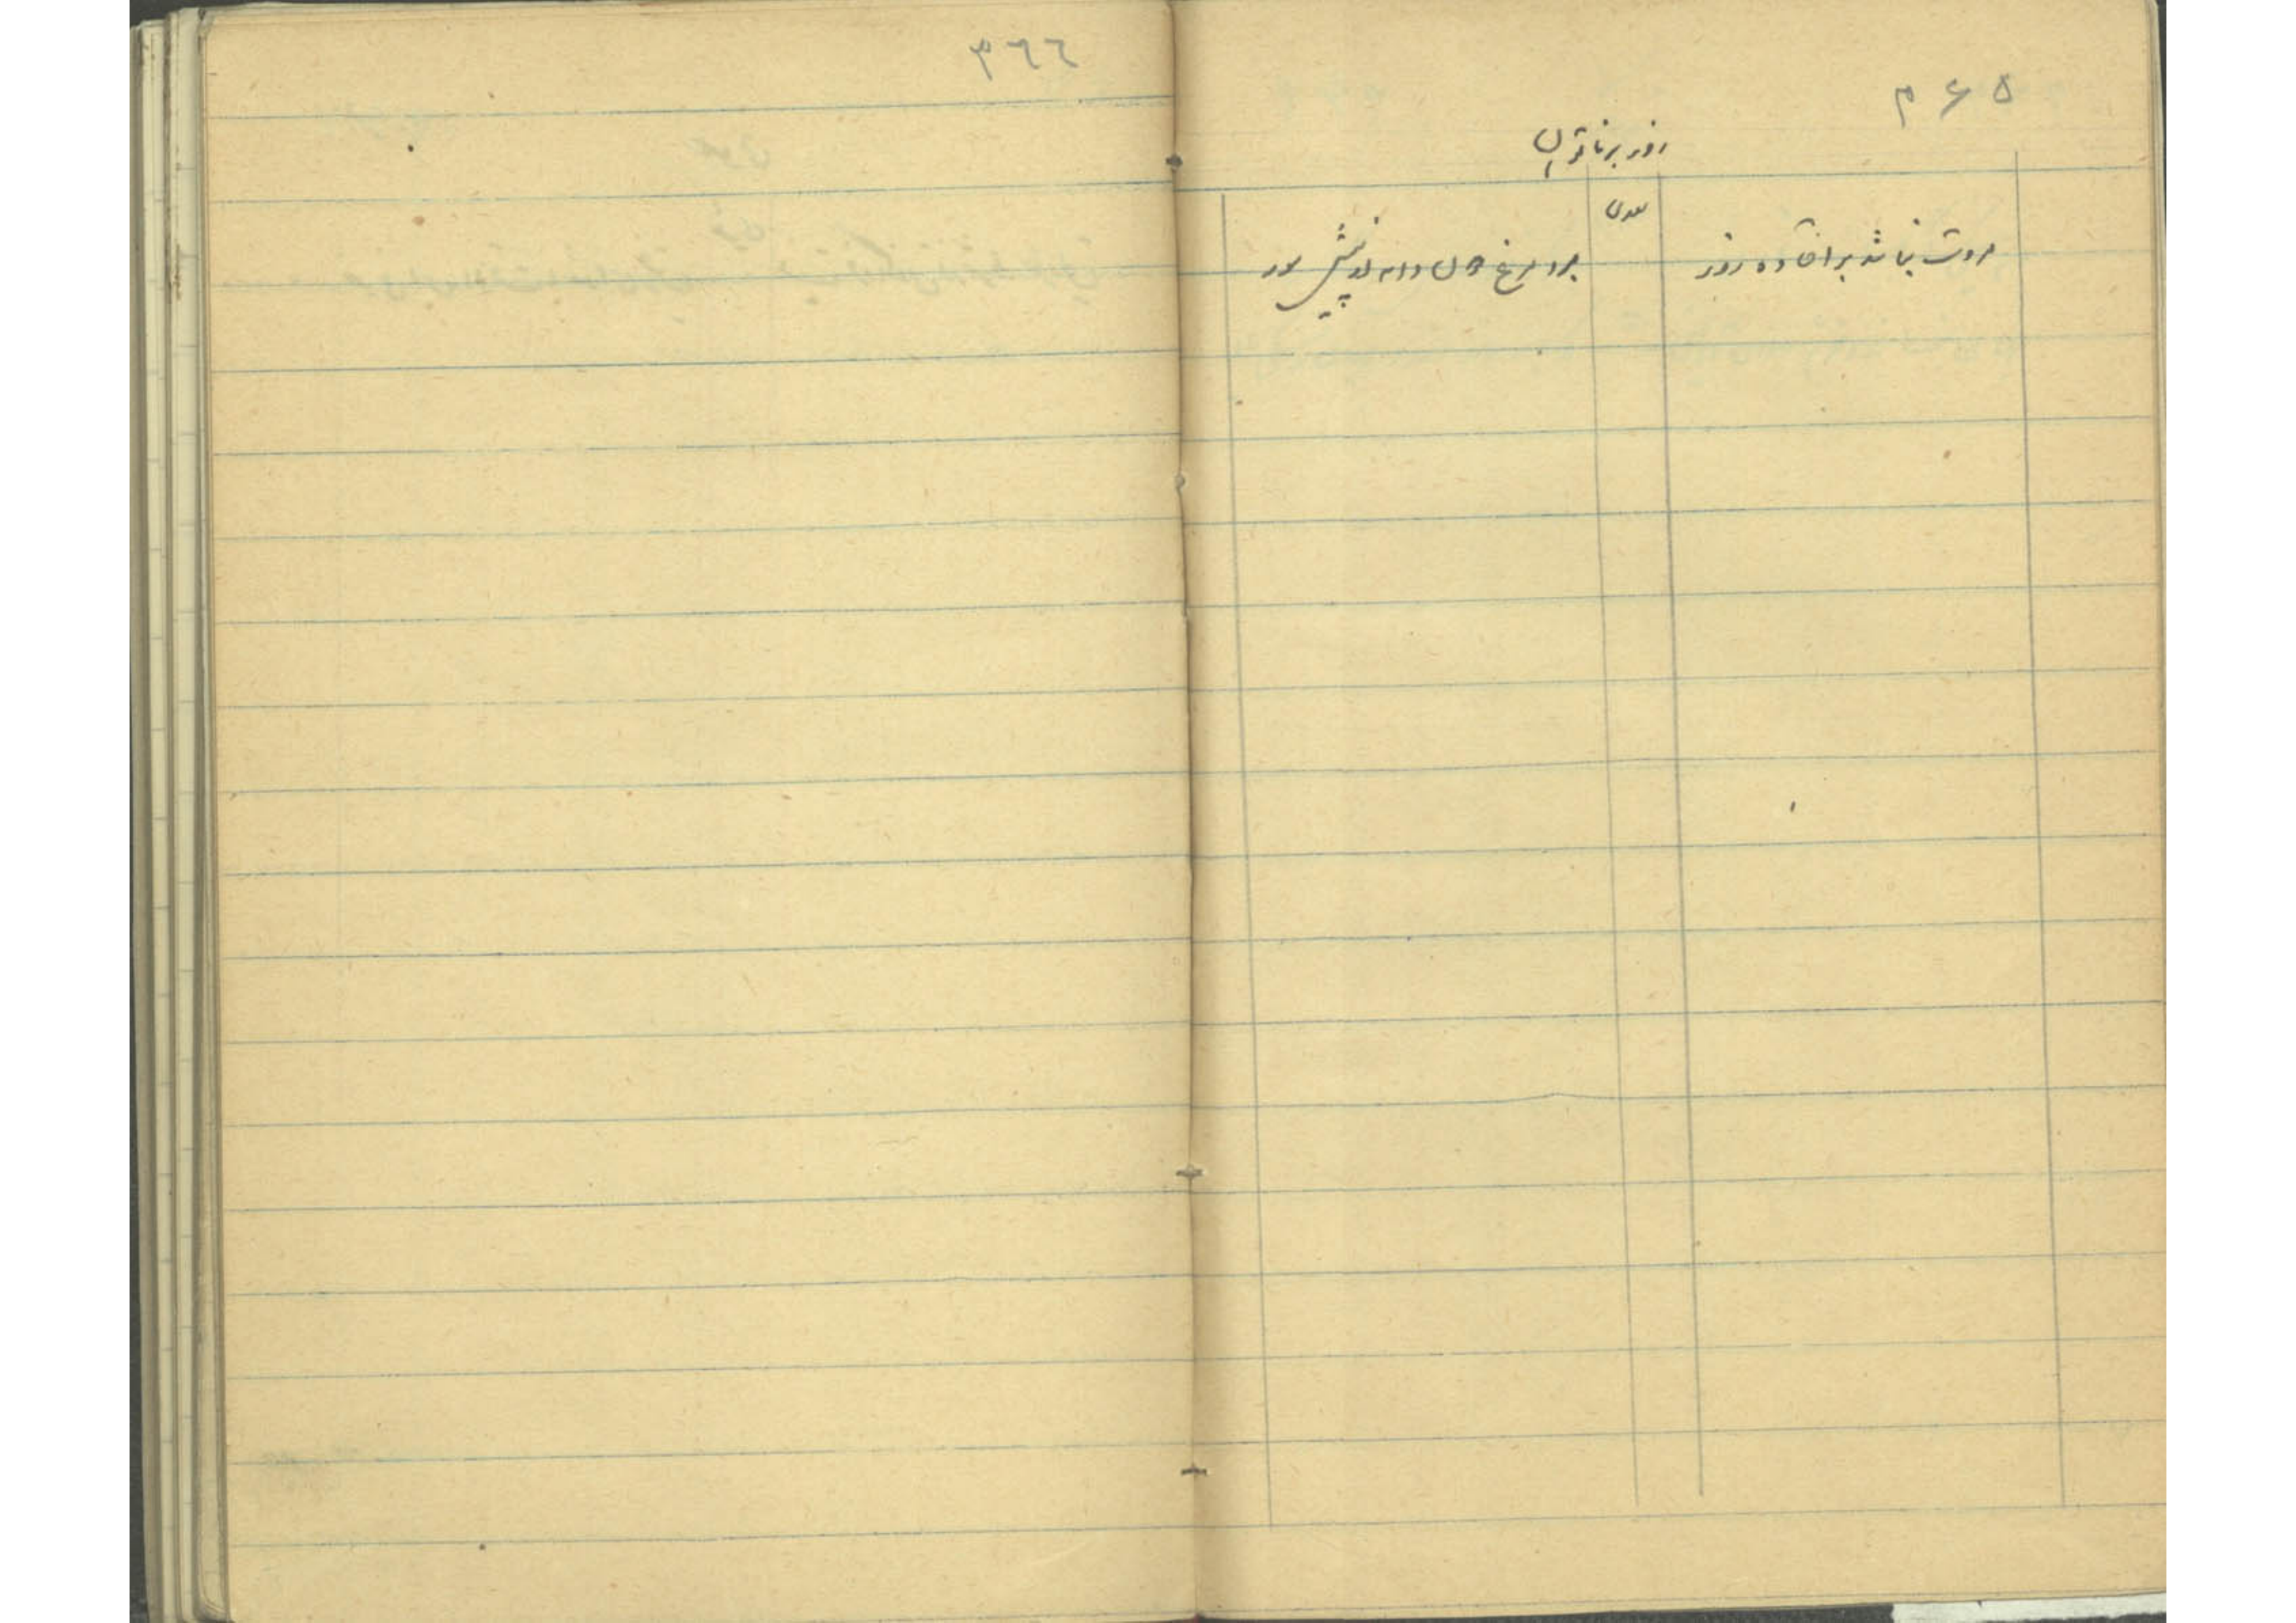 ۳۶۵
زور بر ناتوان
سعدی
مروت نباشد بر افتاده زور
برد مرغ دون دانه از پیش مور
۳۶۶